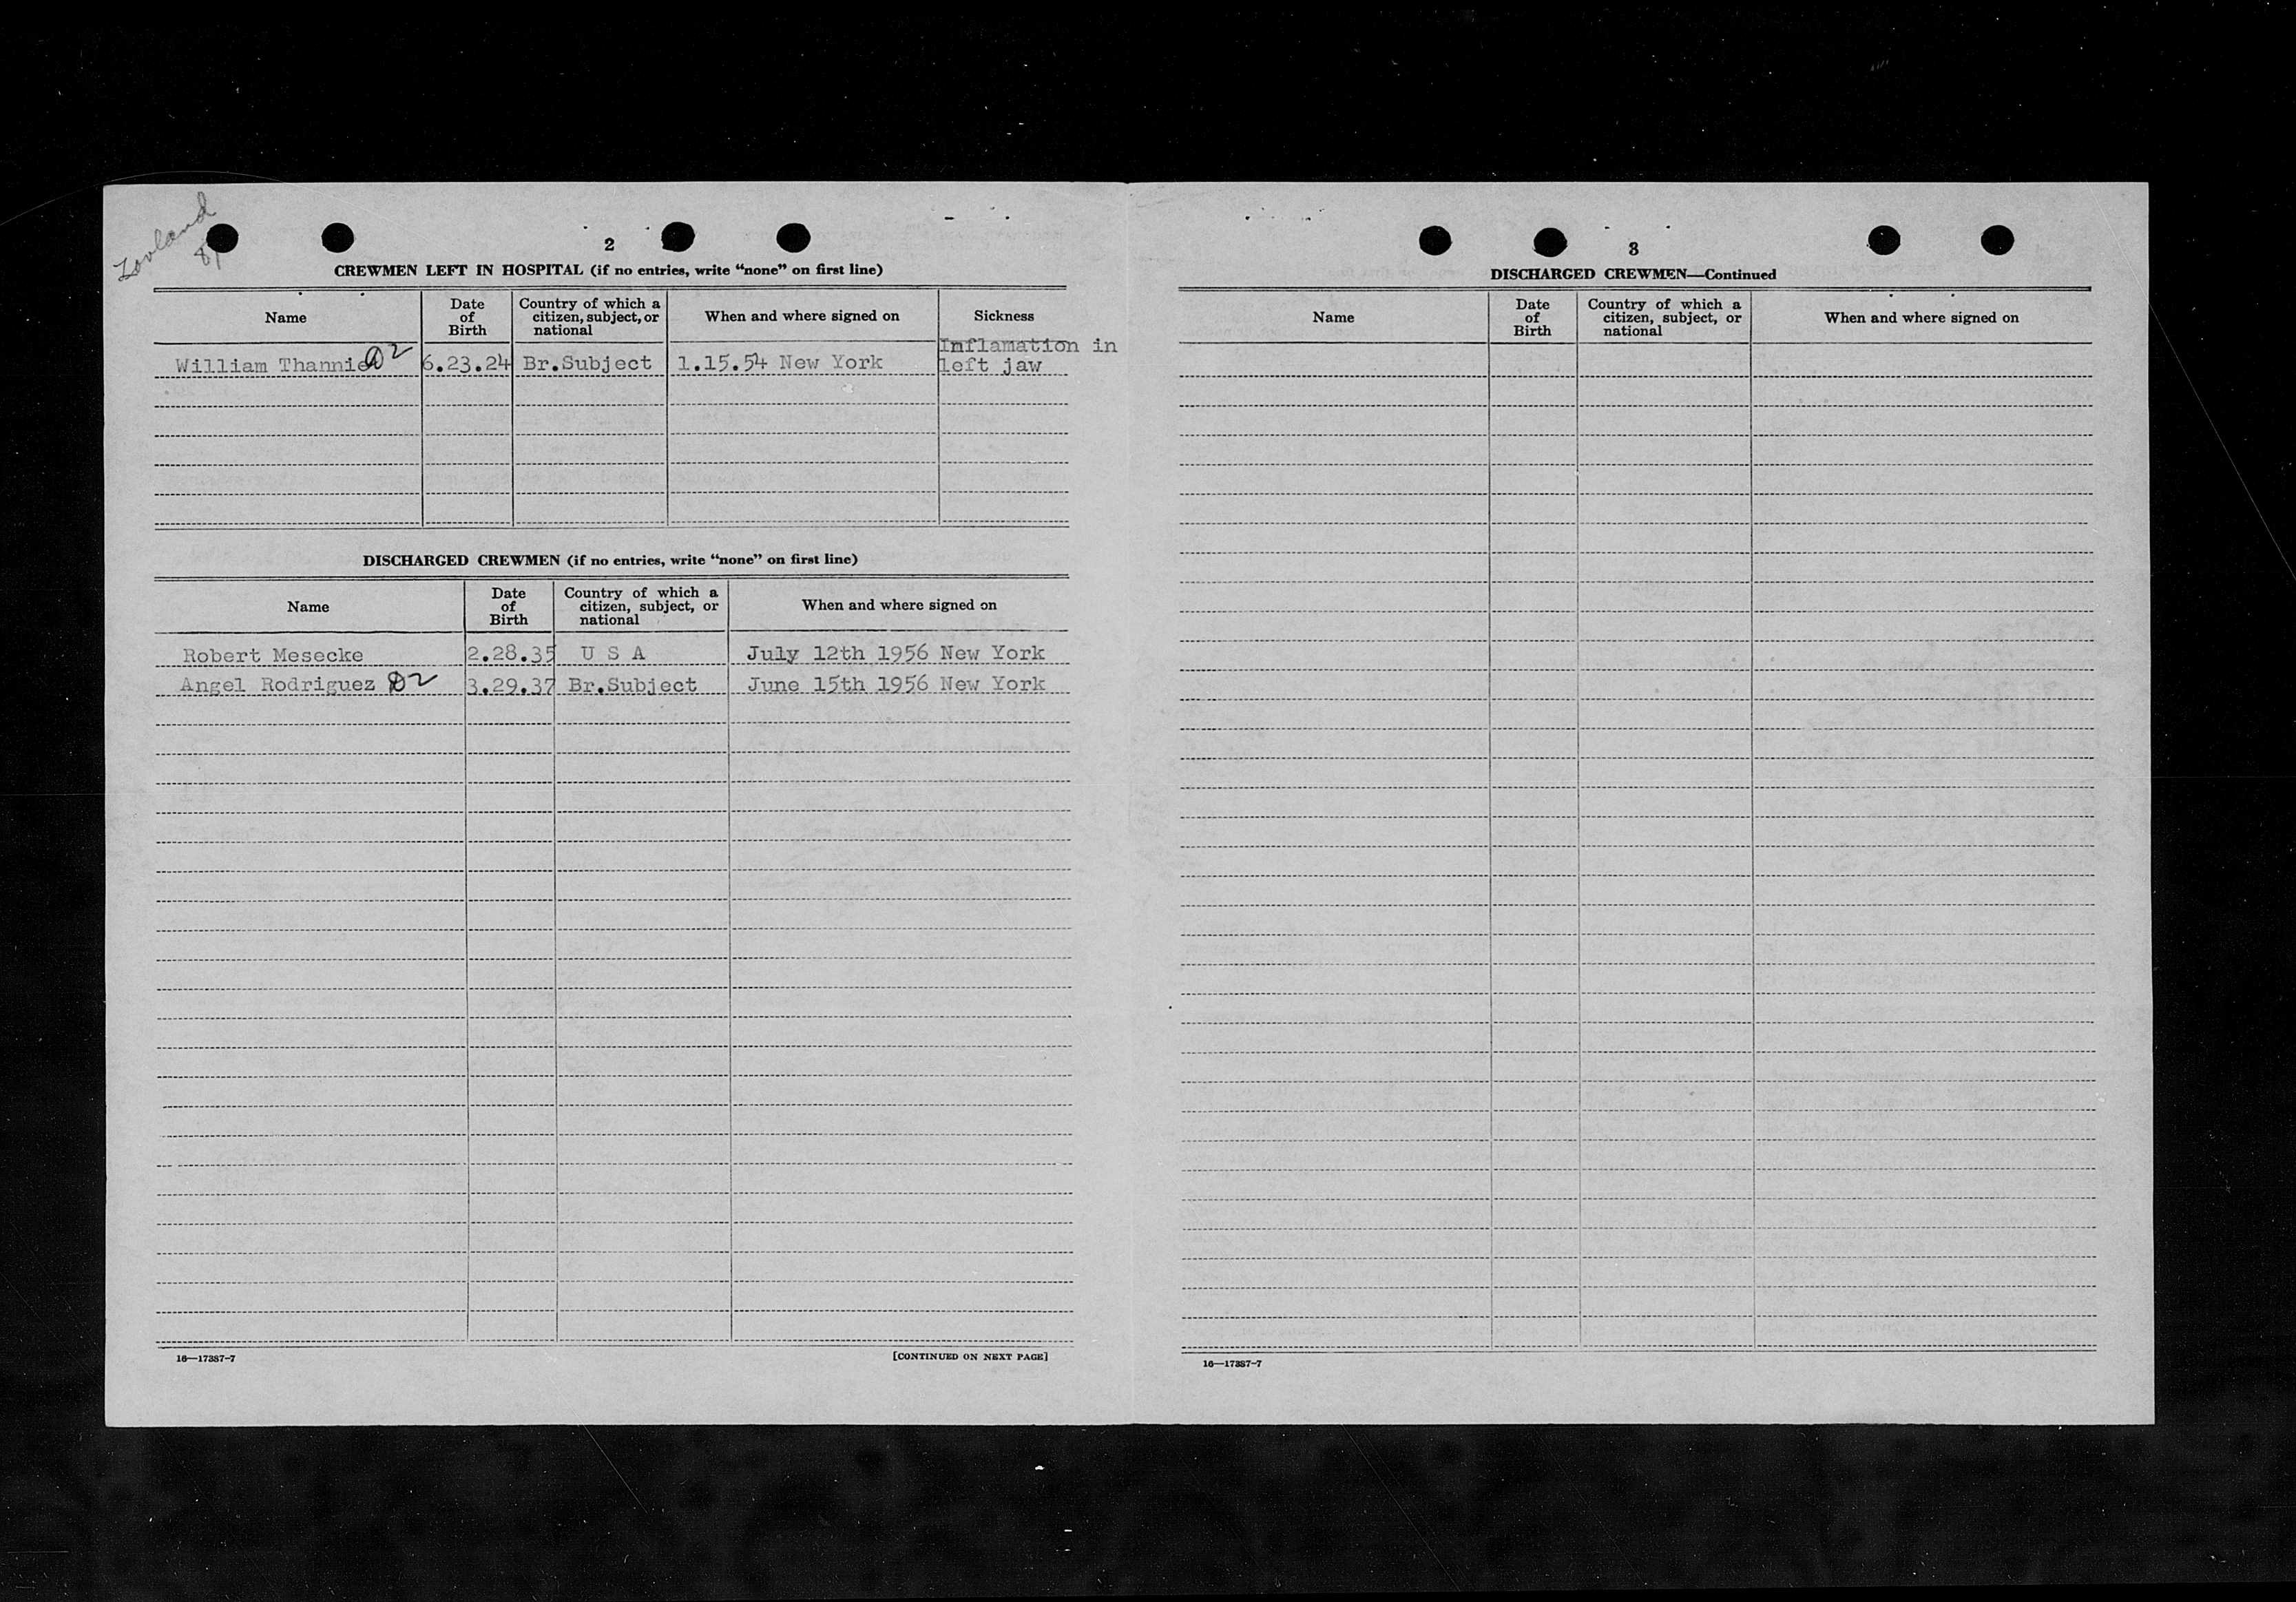 Lovland
2
CREWMEN LEFT IN HOSPITAL (if no entries, write “none” on first line)
Name Date of Birth Country of which a citizen, subject, or national When and where signed on Sickness
William 6.23.24 Br.Subject 1.15.54 New York Inflamation in left jaw
DISCHARGED CREWMEN (if no entries, write “none” on first line)
Name Date of Birth Country of which a citizen, subject, or national When and where signed on
Robert Mesecke 2.28.35 U S A July 12th 1956 New York
Angel Rodriguez D2 3.29.37 Br.Subject June 15th 1956 New York
16—17387-7 [CONTINUED ON NEXT PAGE]
3
DISCHARGED CREWMEN—Continued
Name Date of Birth Country of which a citizen, subject, or national When and where signed on
16—17387-7